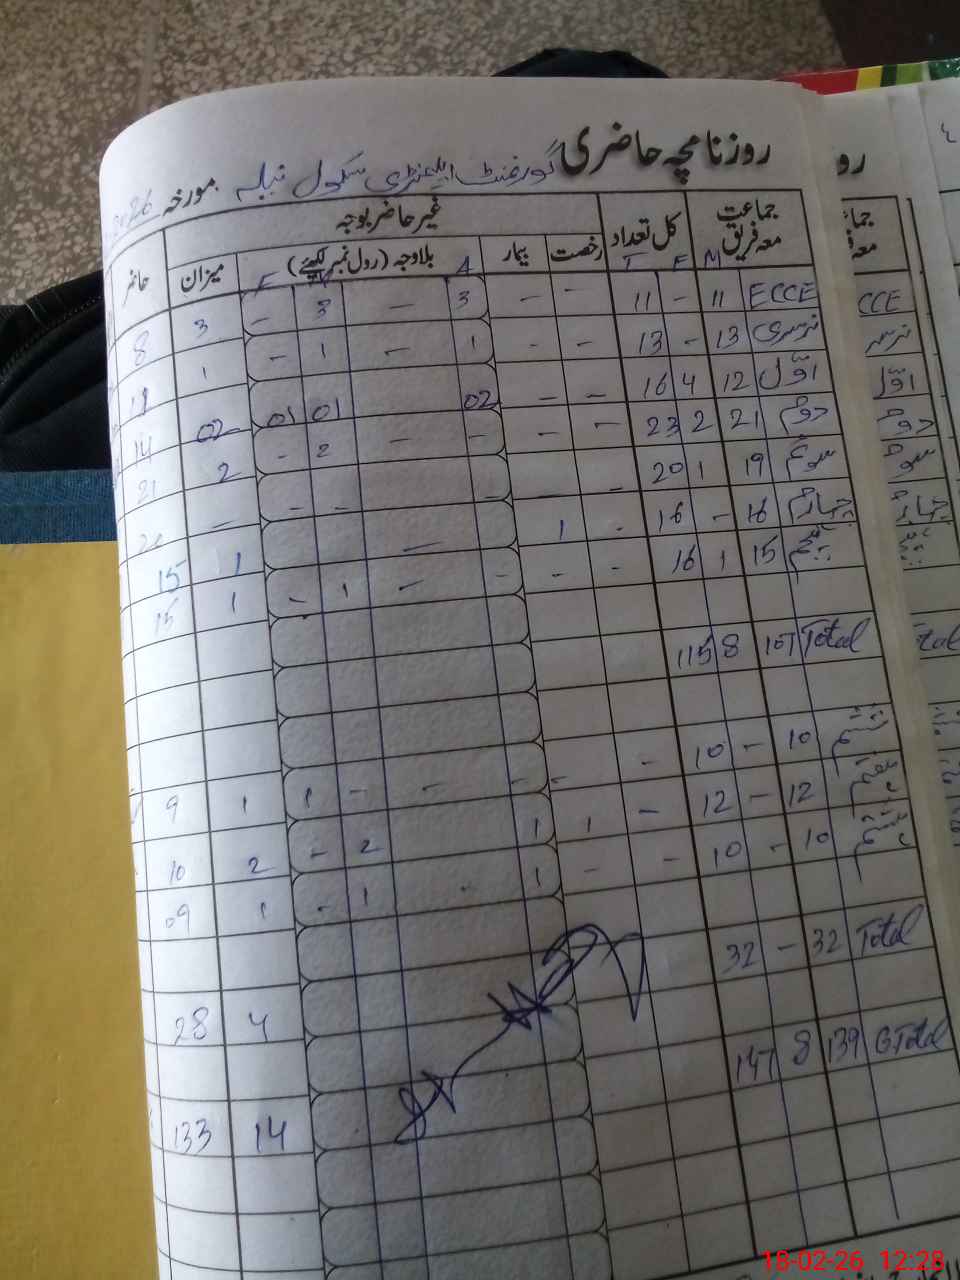 روزنامچہ حاضری گورنمنٹ ایلیمنٹری سکول مورخہ
جماعت معہ فریق کل تعداد غیر حاضر بوجہ حاضر
M F T رخصت بیمار بلاوجہ (رول نمبر لکھیئے) A F میزان
ECCE 11 - 11 - - 3 - 3 - 3 8
نرسری 13 - 13 - - 1 - 1 - 1
اوّل 12 4 16 - - 02 01 01 02 14
دوئم 21 2 23 - - - - 2 - 2 21
سوئم 19 1 20 - - - - - -
چہارم 16 - 16 - 1 - 1 15
پنجم 15 1 16 - - - - 1 - 1 15
Total 107 8 115
ششم 10 - 10 - - - - - 1 1 9
ہفتم 12 - 12 - 1 1 2 - 2 10
ہشتم 10 - 10 - - 1 1 - 1 09
Total 32 - 32
4 28
G Total 139 8 147
14 133
رو
CCE
نرسر
اوّل
دوئم
سوئم
چہارم
18-02-26 12:28